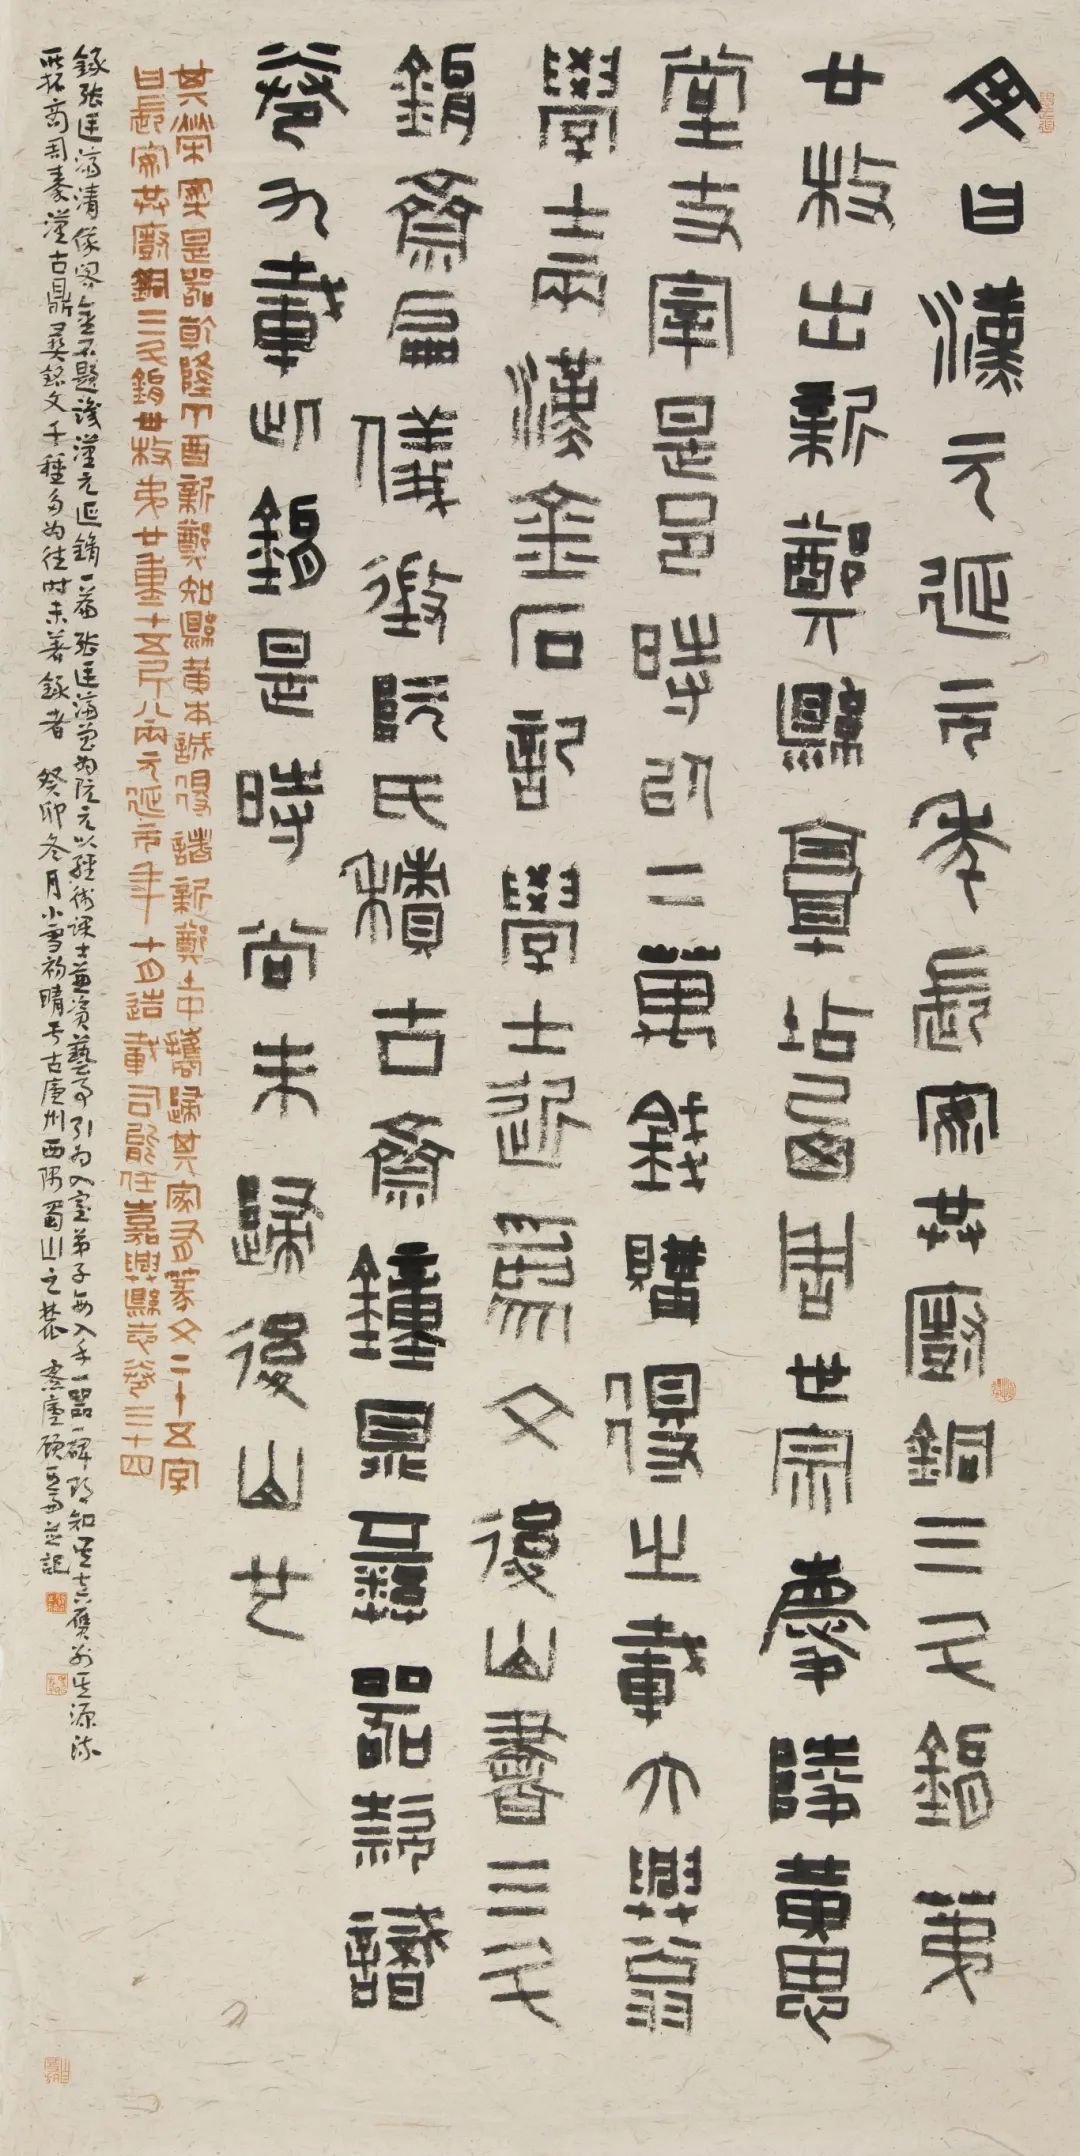 文曰漢元延年長安共廚銅三斗鋗第
廿枚出新鄭縣周世宗慶陵黃思
堂支宰是邑時以二萬錢購得之載大興翁
學士兩漢金石記學士跋為文後山書三斗
鋗齋儀徵阮氏積古齋鐘鼎彝器款識
卷九載此鋗是時尚未歸後山也
其榮案是器乾隆丁酉新鄭知縣黃本誠得諸新鄭土中攜歸其家有篆文二十五字
曰長安共廚銅三斗鋗廿枚第廿重十五斤八兩元延年十月造載司能任嘉興縣志卷三十四
錄張廷濟清儀閣金石題識漢元延鋗一篇張廷濟曾為阮元以經術課士兼資藝事引為入室弟子每入手一器一碑知其真贗別其源流
所拓商周秦漢古鼎彝銘文千種多為往時未著錄者 癸卯冬月小雪初晴于古廬州西隅蜀山之麓 並記